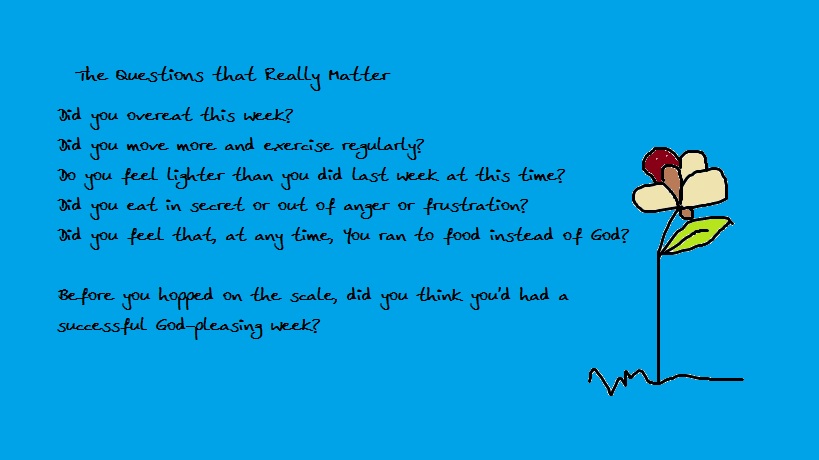 The Questions that Really Matter
Did you overeat this week?
Did you move more and exercise regularly?
Do you feel lighter than you did last week at this time?
Did you eat in secret or out of anger or frustration?
Did you feel that, at any time, You ran to food instead of God?
Before you hopped on the scale, did you think you'd had a
successful God-pleasing week?